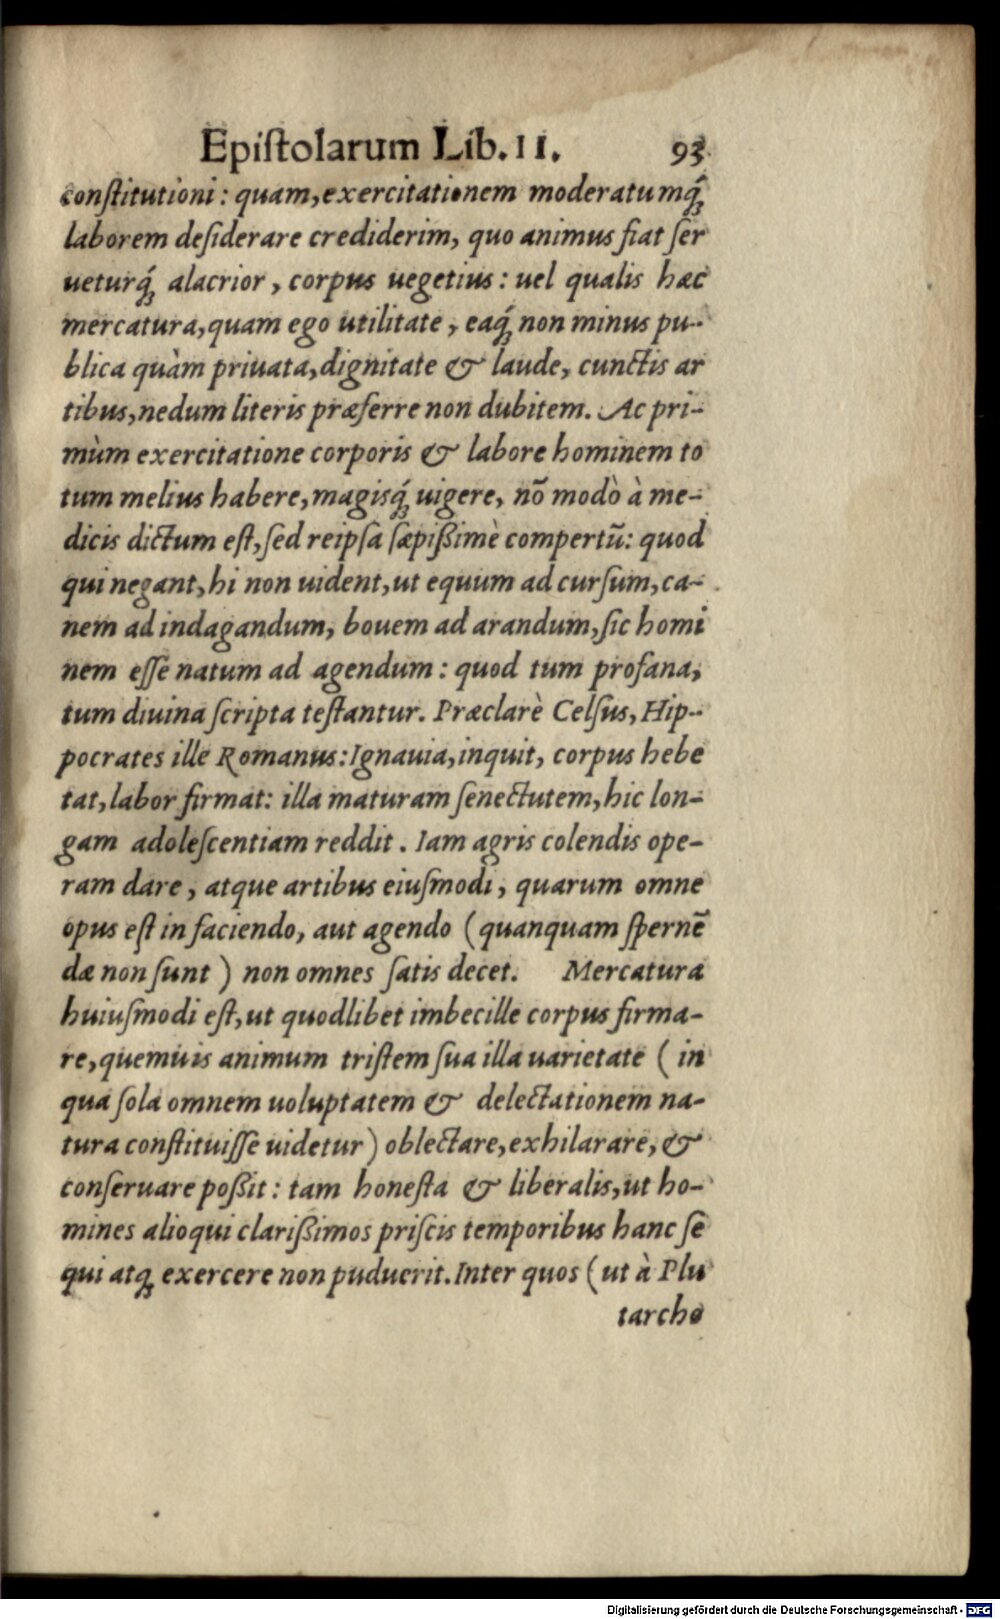 Epiſtolarum Lib. II. 93
conſtitutioni: quam, exercitationem moderatumq́;
laborem deſiderare crediderim, quo animus fiat ſer
ueturq́; alacrior, corpus uegetius: uel qualis hæc
mercatura, quam ego utilitate, eaq́; non minus pu-
blica quàm priuata, dignitate & laude, cunctis ar
tibus, nedum literis præferre non dubitem. Ac pri-
mùm exercitatione corporis & labore hominem to
tum melius habere, magisq́; uigere, nō modò à me-
dicis dictum eſt, ſed reipſa ſæpißimè compertū: quod
qui negant, hi non uident, ut equum ad curſum, ca-
nem ad indagandum, bouem ad arandum, ſic homi
nem eſſe natum ad agendum: quod tum profana,
tum diuina ſcripta teſtantur. Præclarè Celſus, Hip-
pocrates ille Romanus: Ignauia, inquit, corpus hebe
tat, labor firmat: illa maturam ſenectutem, hic lon-
gam adoleſcentiam reddit. Iam agris colendis ope-
ram dare, atque artibus eiuſmodi, quarum omne
opus eſt in faciendo, aut agendo (quanquam ſpernē
dæ non ſunt) non omnes ſatis decet. Mercatura
huiuſmodi eſt, ut quodlibet imbecille corpus firma-
re, quemuis animum triſtem ſua illa uarietate (in
qua ſola omnem uoluptatem & delectationem na-
tura conſtituiſſe uidetur) oblectare, exhilarare, &
conſeruare poßit: tam honeſta & liberalis, ut ho-
mines alioqui clarißimos priſcis temporibus hanc ſe
qui atq; exercere non puduerit. Inter quos (ut à Plu
tarcho
Digitalisierung gefördert durch die Deutsche Forschungsgemeinschaft - DFG